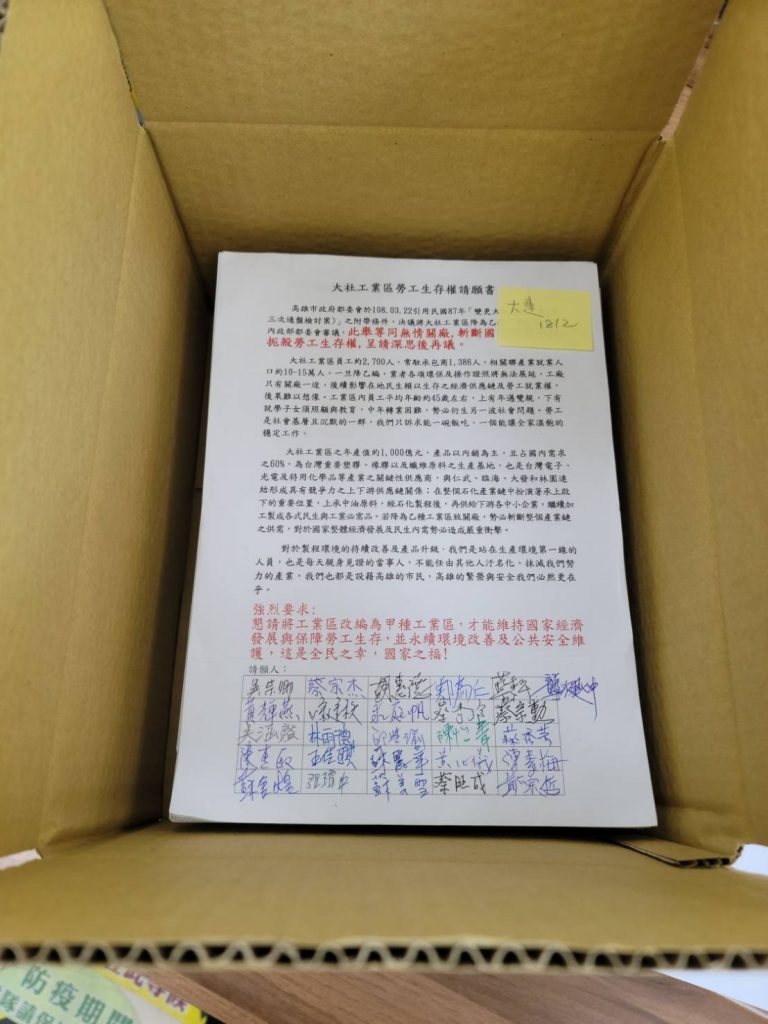 大社工業區勞工生存權請願書
大連
1812
高雄市政府都委會於108.03.22引用民國87年「變更大
三次通盤檢討案)」之附帶條件,決議將大社工業區降為乙
內政部都委會審議,此舉等同無情關廠,斬斷國
扼殺勞工生存權,呈請深思後再議。
大社工業區員工約2,700人,常駐承包商1,386人,相關聯產業就業人
口約10-15萬人,一旦降乙編,業者各項環保及操作證照將無法展延,工廠
只有關廠一途,後續影響在地民生賴以生存之經濟供應鏈及勞工就業權,
後果難以想像。工業區內員工平均年齡約45歲左右,上有年邁雙親,下有
就學子女須照顧與教育,中年轉業困難,勢必衍生另一波社會問題。勞工
是社會基層且沉默的一群,我們只訴求能一碗飯吃,一個能讓全家溫飽的
穩定工作。
大社工業區之年產值約1,000億元,產品以內銷為主,且占國內需求
之60%,為台灣重要塑膠、橡膠以及纖維原料之生產基地,也是台灣電子、
光電及特用化學品等產業之關鍵性供應商,與仁武、臨海、大發和林園連
結形成具有競爭力之上下游供應鏈關係;在整個石化產業鏈中扮演著承上啟下
的重要位置,上承中油原料,經石化製程後,再供給下游各中小企業,繼續加
工製成各式民生與工業必需品。若降為乙種工業區致關廠,勢必斬斷整個產業鏈
之供需,對於國家整體經濟發展及民生內需勢必造成嚴重衝擊。
對於製程環境的持續改善及產品升級,我們是站在生產環境第一線的
人員,也是每天親身見證的當事人,不能任由其他人汙名化、抹滅我們努
力的產業,我們也都是設籍高雄的市民,高雄的繁榮與安全我們必然更在
乎。
強烈要求:
懇請將工業區改編為甲種工業區,才能維持國家經濟
發展與保障勞工生存,並永續環境改善及公共安全維
護,這是全民之幸,國家之福!
請願人:
吳宗勳 蔡宗杰 胡惠德
黃輝燕 蔡宗勳
林雨德
陳惠敏 王佳騏
蘇美雪 蔡旺成
防疫期間